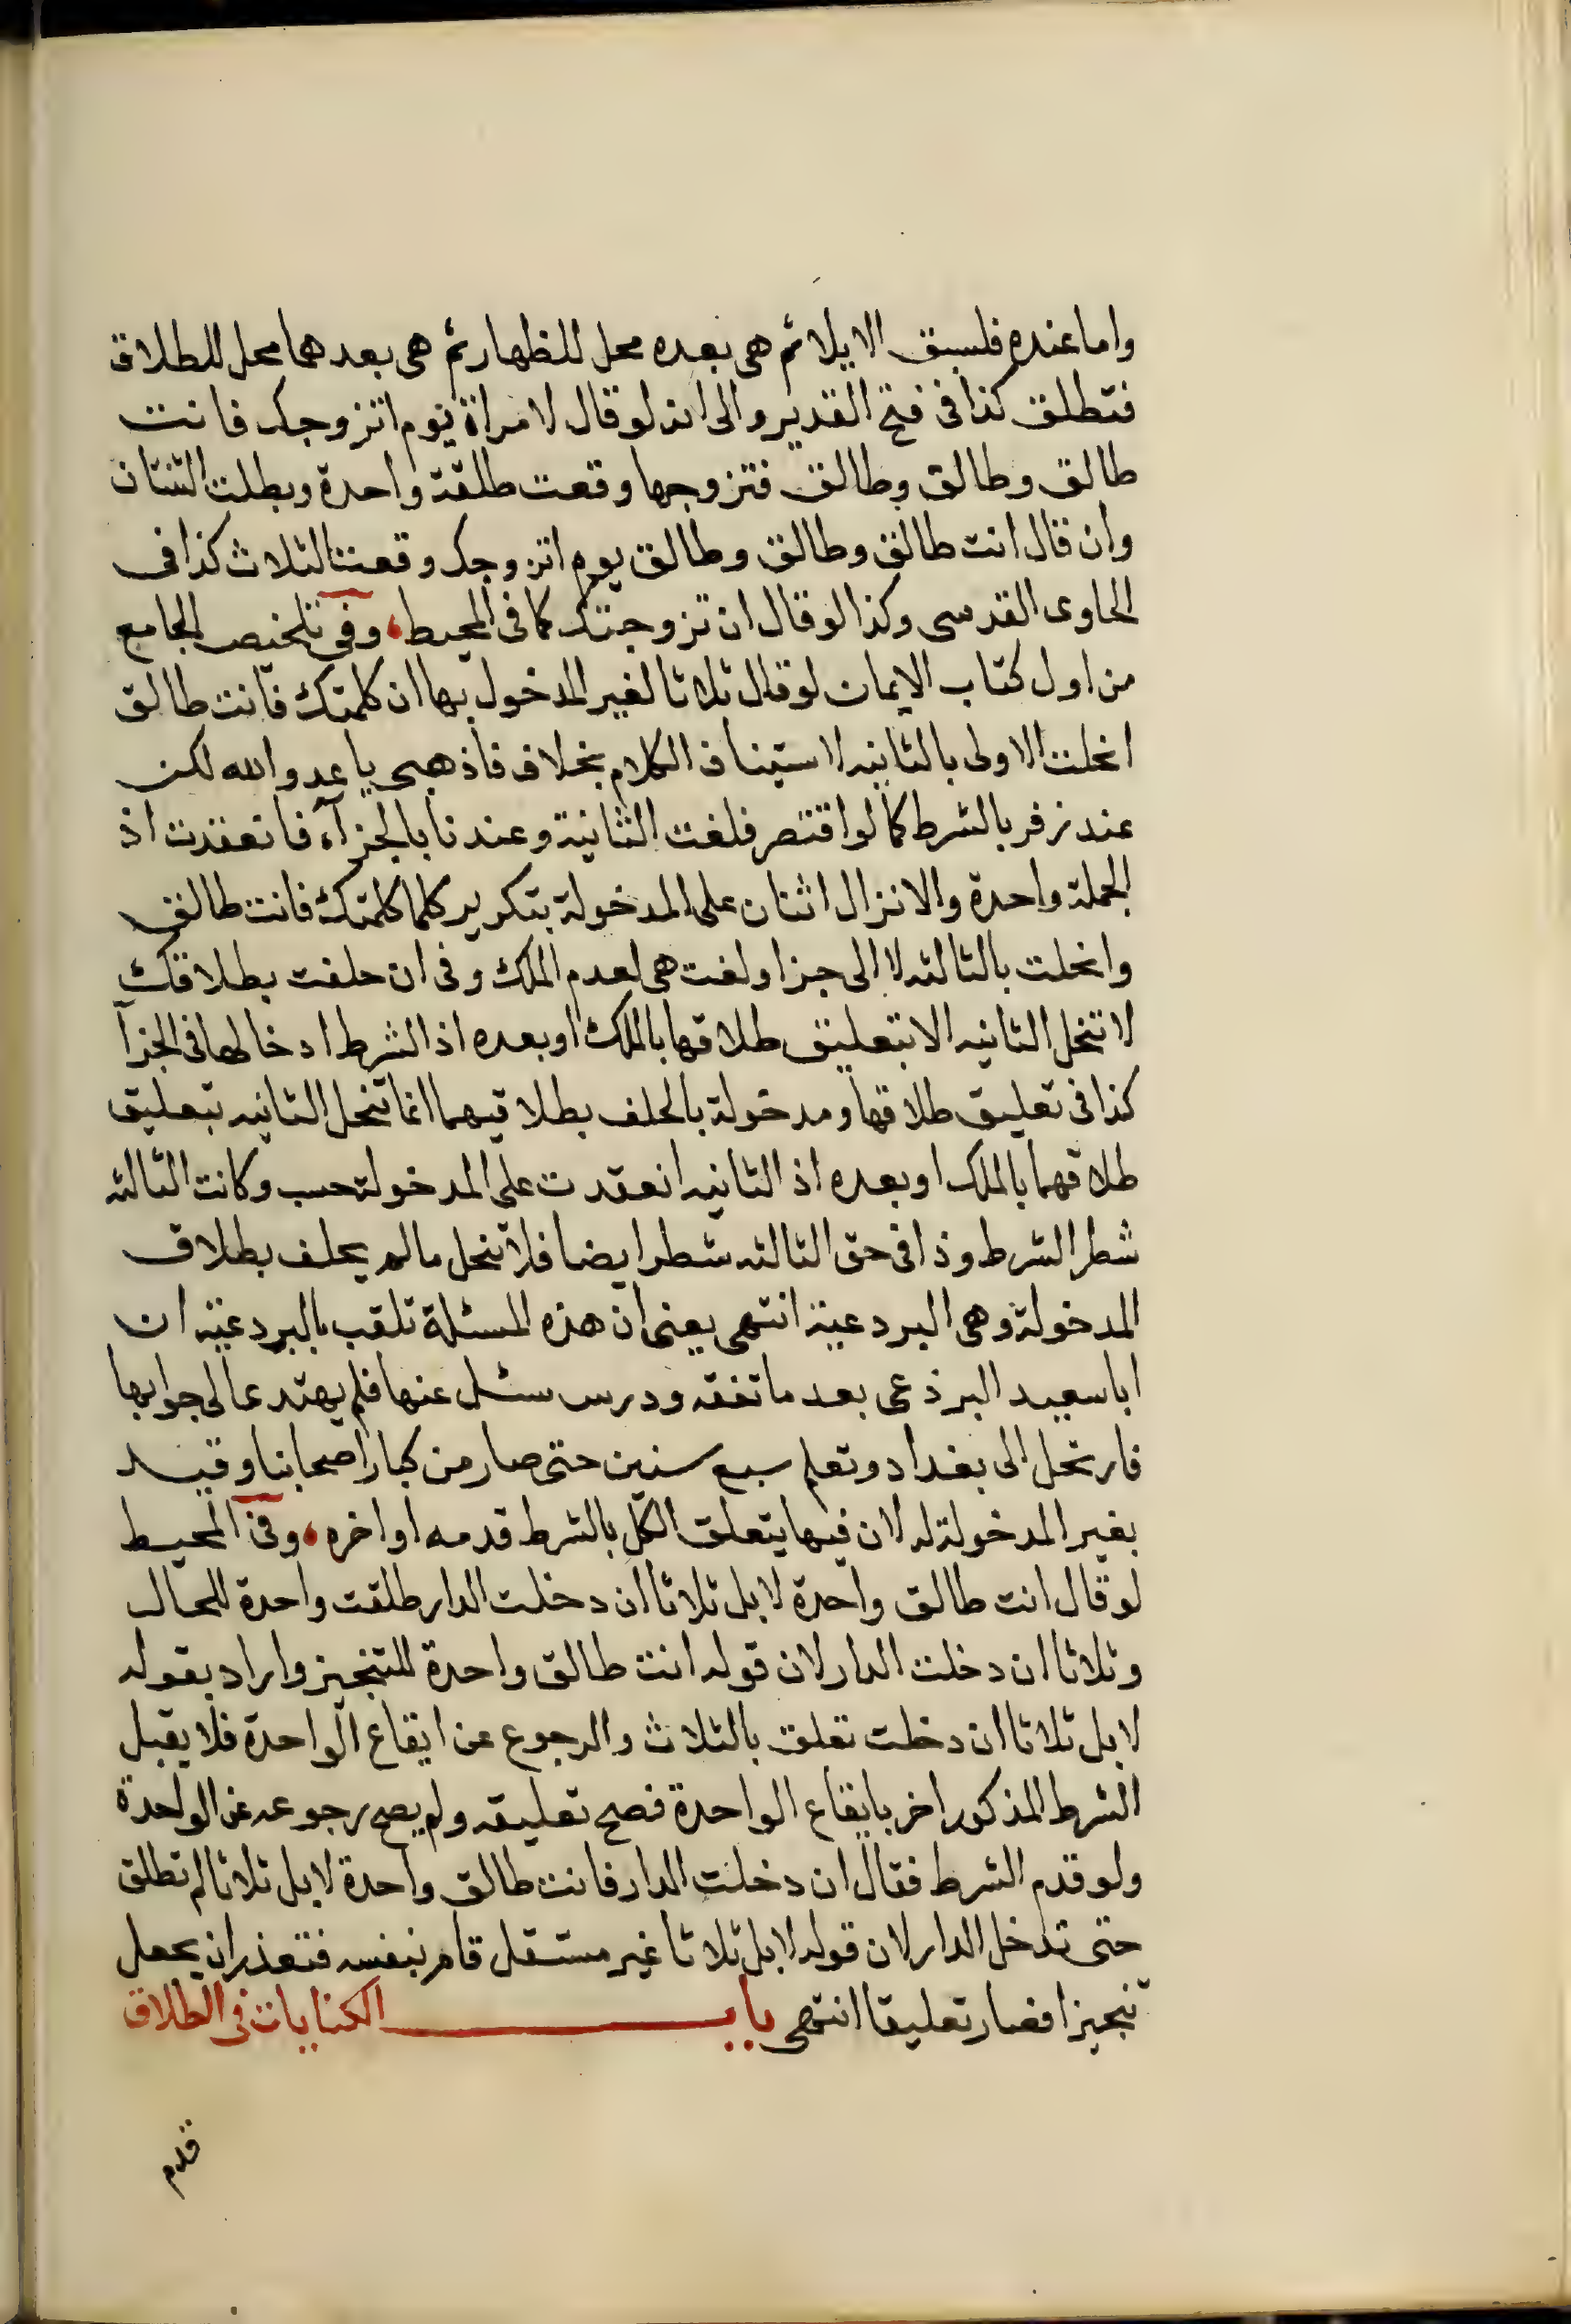 واما عنده فلسبق الايلا ثم هى بعده محل للظهار ثم هى بعدهما محل للطلاق
فتطلق كذا فى فتح القدير والى انه لو قال لامراة يوم اتزوجك فانت
طالق وطالق وطالق فتزوجها وقعت طلقة واحدة وبطلت الثنتان
وان قال انت طالق وطالق وطالق يوم اتزوجك وقعت الثلاث كذا فى
الحاوى القدسى وكذا لو قال ان تزوجتك كما فى المحيط، وفى تلخيص الجامع
من اول كتاب الايمان لو قال ثلاثا لغير المدخول بها ان كلمتك فانت طالق
انحلت الاولى بالثانيه لاستيناف الكلام بخلاف فاذهبى يا عدو الله لكن
عند زفر بالشرط كما لو اقتصر فلغت الثانية وعندنا بالجزآء فانعقدت اذ
الجملة واحدة والا نزال اثنان على المدخولة بتكرير كلما كلمتك فانت طالق
وانحلت بالثالثه لا الى جزا ولغت هى لعدم الملك وفى ان حلفت بطلاقك
لا تنحل الثانيه الا بتعليق طلاقها بالملك او بعده اذ الشرط ادخالها فى الجزآ
كذا فى تعليق طلاقها ومدخولة بالحلف بطلاقيهما انما تنحل الثانيه بتعليق
طلاقهما بالملك او بعده اذ الثانيه انعقدت على المدخولة حسب وكانت الثالثه
شطر الشرط وذا فى حق الثالثه شطر ايضا فلا تنحل ما لم يحلف بطلاق
المدخولة وهى البردعية انتهى يعنى ان هذه المسئلة تلقب بالبردعيّه ان
ابا سعيد البرذعى بعد ما تفقه ودرس سئل عنها فلم يهتد عا لى جوابها
فارتحل الى بغداد وتعلم سبع سنين حتى صار من كبار اصحابنا وقيد
بغير المدخولة له لان فيها يتعلق الكل بالشرط قدمه او اخره، وفى المحيط
لو قال انت طالق واحدة لا بل ثلاثا ان دخلت الدار طلقت واحدة للحال
وثلاثا ان دخلت الدار لان قوله انت طالق واحدة للتنجيز واراد بقوله
لا بل ثلاثا ان دخلت تعلق بالثلاث والرجوع عن ايقاع الواحدة فلا يقبل
الشرط المذكور اخر بايقاع الواحدة فصح تعليقه ولم يصح رجوعه عن الواحدة
ولو قدم الشرط فقال ان دخلت الدار فانت طالق واحدة لا بل ثلاثا لم تطلق
حتى تدخل الدار لان قوله لا بل ثلاثا غير مستقل قام بنفسه فتعذر ان يجعل
تنجيزا فصار تعليقا انتهى باب الكنايات فى الطلاق
قدم